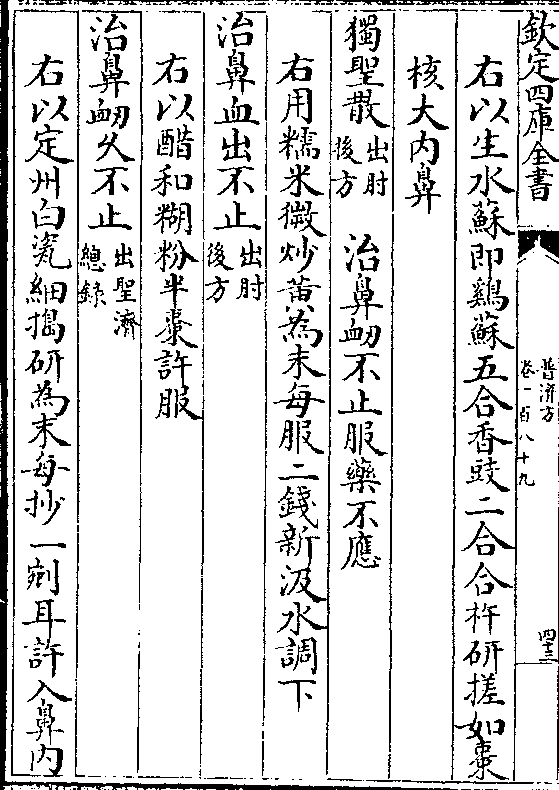 欽定四庫全書
普濟方
卷一百八十九
四十三
右以生水蘇即鷄蘇五合香豉二合合杵研搓如棗
核大内鼻
獨聖散出肘後方　治鼻衄不止服藥不應
右用糯米微炒黄為末每服二錢新汲水調下
治鼻血出不止出肘後方
右以醋和糊粉半棗許服
治鼻衄久不止出聖濟總錄
右以定州白瓷細搗研為末每抄一剜耳許入鼻内